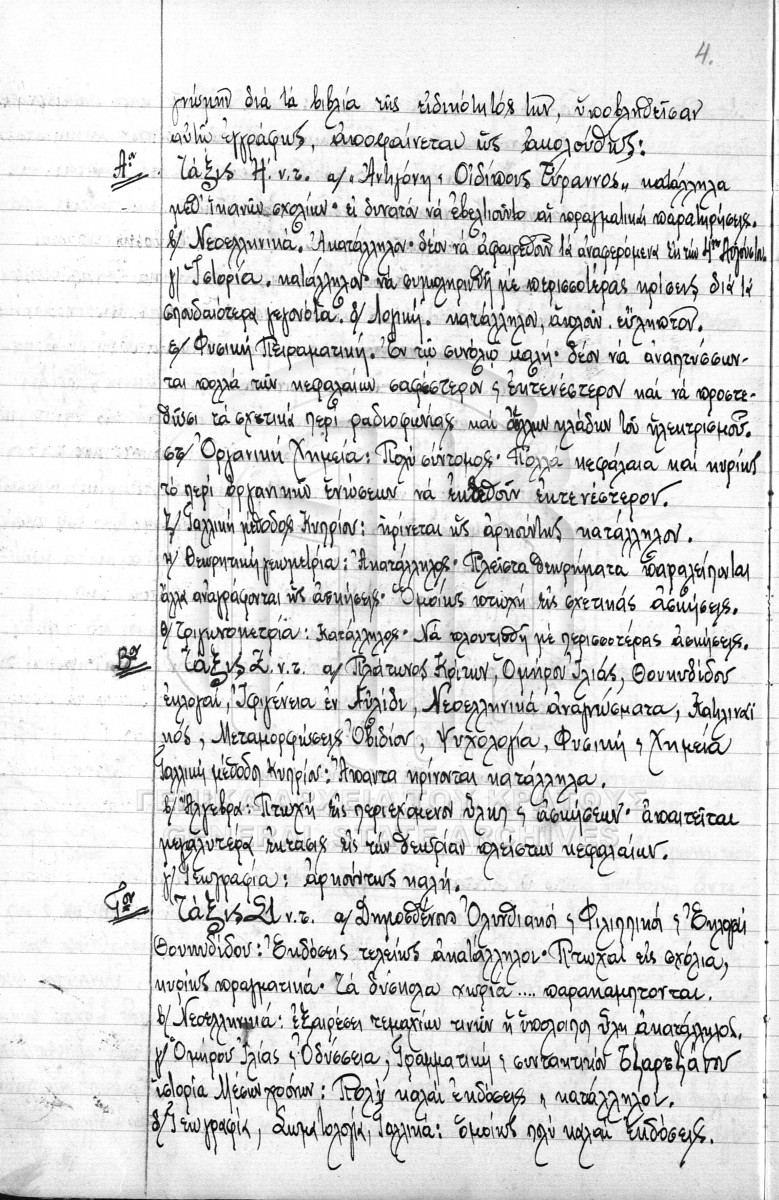 4.
γνώμην διὰ τὰ βιβλία τῆς εἰδικότητός των, ὑποβληθεῖσαν
αὐτῷ ἐγγράφως, ἀποφαίνεται ὡς ἀκολούθως:
Αον Τάξις Η. ν.τ. α/ "Ἀντιγόνη ϛ Οἰδίπους Τύραννος" κατάλληλα
μεθ' ἱκανῶν σχολίων· εἰ δυνατὸν νὰ ἐβελτιοῦντο αἱ πραγματικαὶ παρατηρήσεις.
β/ Νεοελληνικά. Ἀκατάλληλον· δέον νὰ ἀφαιρεθοῦν τὰ ἀναφερόμενα εἰς τὴν 4ην Αὐγούστου.
γ/ Ἱστορία. κατάλληλον· νὰ συμπληρωθῇ μὲ περισσοτέρας κρίσεις διὰ τὰ
σπουδαιότερα γεγονότα. δ/ Λογική. κατάλληλον, ἁπλοῦν εὔληπτον.
ε/ Φυσικὴ Πειραματική. Ἐν τῷ συνόλῳ καλή· δέον νὰ ἀναπτύσσων-
ται πολλὰ τῶν κεφαλαίων σαφέστερον ϛ ἐκτενέστερον καὶ νὰ προστε-
θῶσι τὰ σχετικὰ περὶ ραδιοφωνίας καὶ ἄλλων κλάδων τοῦ ἠλεκτρισμοῦ.
στ/ Ὀργανικὴ Χημεία: Πολὺ σύντομος· Πολλὰ κεφάλαια καὶ κυρίως
τὸ περὶ ὀργανικῶν ἑνώσεων νὰ ἐκτεθοῦν ἐκτενέστερον.
ζ/ Γαλλικὴ μέθοδος Κυπρίου: κρίνεται ὡς ἀρκούντως κατάλληλον.
η/ Θεωρητικὴ γεωμετρία: Ἀκατάλληλος· Πλεῖστα θεωρήματα παραλείπονται
ἄλλα ἀναγράφονται ὡς ἀσκήσεις· Ὁμοίως πτωχὴ εἰς σχετικὰς ἀσκήσεις.
θ/ Τριγωνομετρία: Κατάλληλος· Νὰ πλουτισθῇ μὲ περισσοτέρας ἀσκήσεις.
Βον Τάξις Ζ. ν.τ. α/ Πλάτωνος Κρίτων, Ὁμήρου Ἰλιάς, Θουκυδίδου
ἐκλογαί, Ἰφιγένεια ἐν Αὐλίδι, Νεοελληνικὰ ἀναγνώσματα, Κατιλιναϊ
κός, Μεταμορφώσεις Ὀβιδίου, Ψυχολογία, Φυσικὴ ϛ Χημεία
Γαλλικὴ μέθοδος Κυπρίου: Ἅπαντα κρίνονται κατάλληλα.
β/ Ἄλγεβρα: Πτωχὴ εἰς περιεχόμενον ὕλης ϛ ἀσκήσεων· ἀπαιτεῖται
μεγαλυτέρα ἔκτασις εἰς τὴν θεωρίαν πλείστων κεφαλαίων.
γ/ Γεωγραφία: ἀρκούντως καλή.
Γον Τάξις ΣΤ ν.τ. α/ Δημοσθένους Ὀλυνθιακοὶ ϛ Φιλιππικοὶ ϛ Ἐκλογαὶ
Θουκυδίδου: Ἐκδόσεις τελείως ἀκατάλληλοι· Πτωχαὶ εἰς σχόλια,
κυρίως πραγματικά· τὰ δύσκολα χωρία .... παρακάμπτονται.
β/ Νεοελληνικά: ἐξαιρέσει τεμαχίων τινῶν ἡ ὑπόλοιπη ὕλη ἀκατάλληλος.
γ/ Ὁμήρου Ἰλιὰς ϛ Ὀδύσσεια, Γραμματικὴ ϛ συντακτικὸν Τζαρτζάνου
ἱστορία Μέσων χρόνων: Πολὺ καλαὶ ἐκδόσεις ϛ κατάλληλοι.
δ/ Γεωγραφία, Σωματολογία, Γαλλικά: ὁμοίως πολὺ καλαὶ ἐκδόσεις.
ΓΕΝΙΚΑ ΑΡΧΕΙΑ ΤΟΥ ΚΡΑΤΟΥΣ
GENERAL STATE ARCHIVES